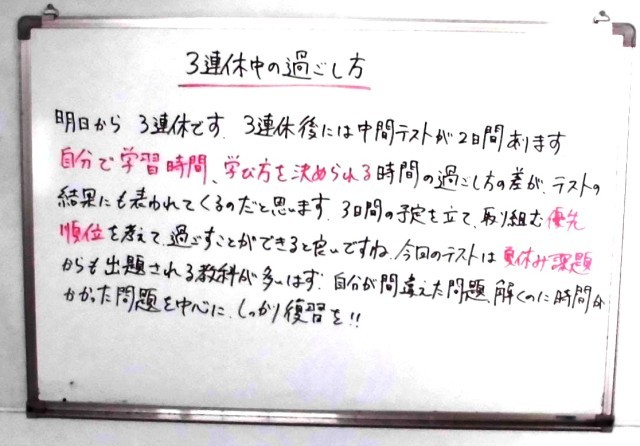 3連休中の過ごし方
明日から 3連休です. 3連休後には中間テストが2日間あります
自分で学習時間、学び方を決められる時間の過ごし方の差が、テストの
結果にも表われてくるのだと思います. 3日間の予定を立て、取り組む優先
順位を考えて、過ごすことができると良いですね. 今回のテストは夏休み課題
からも出題される教科が多いはず. 自分が間違えた問題、解くのに時間が
かかった問題を中心に、しっかり復習を!!